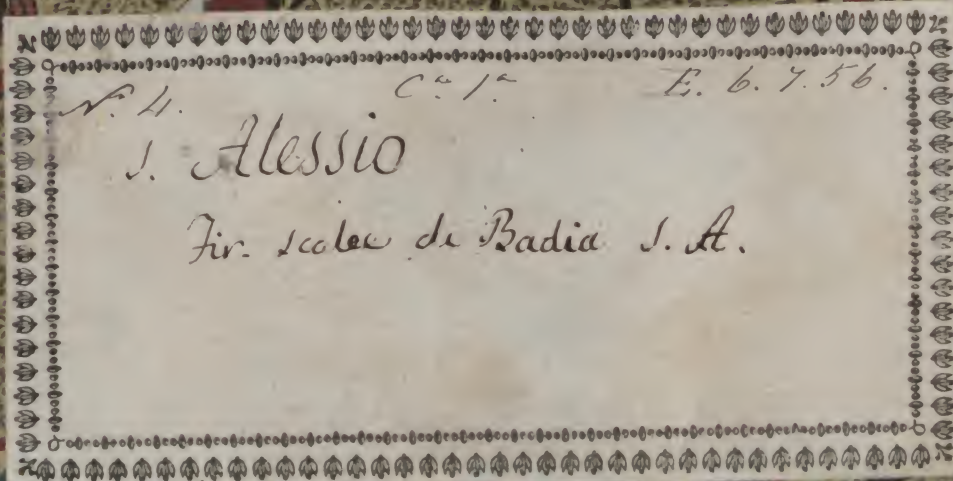 N.° 4. C.a 1.a E. 6. 7. 56.
S. Alessio
Fir. scolec di Badia S. A.